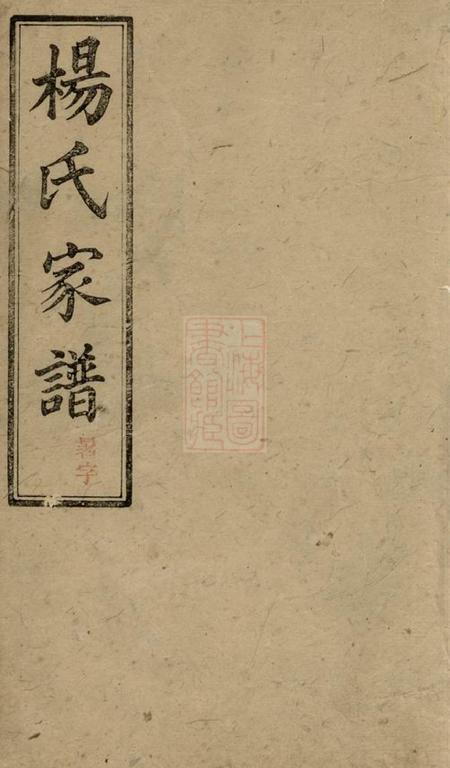 楊氏家譜
字
上海圖
書館藏